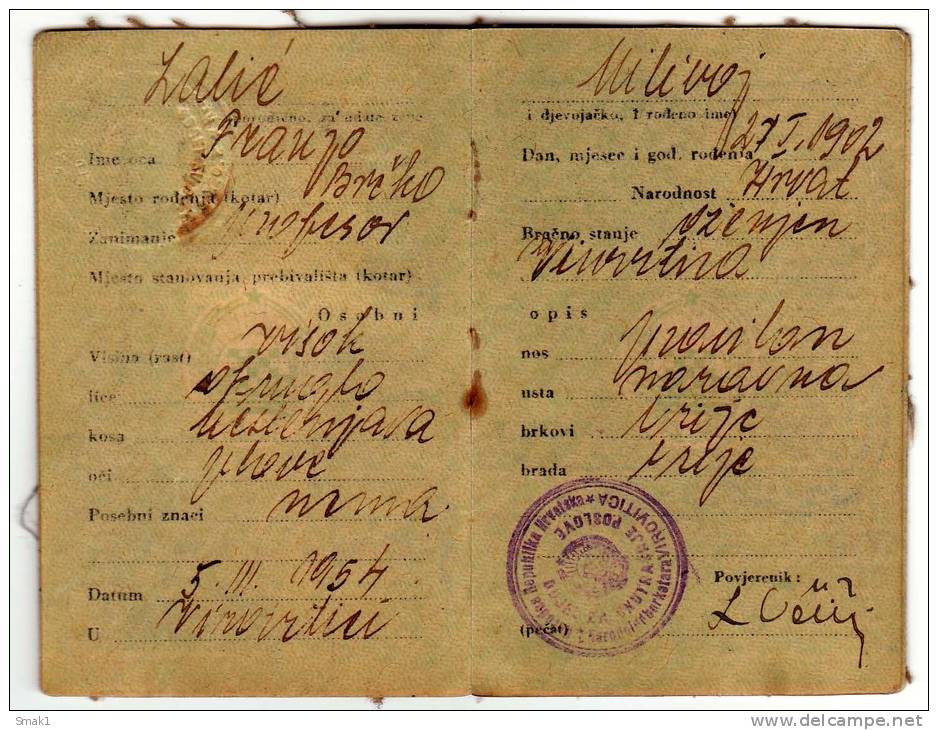 Lalić
Porodično, za udate žene
Ime oca Franjo
Mjesto rođenja (kotar) Brčko
Zanimanje profesor
Mjesto stanovanja, prebivališta (kotar)
Osobni
Visina (rast) visok
lice okruglo
kosa kestenjava
oči plave
Posebni znaci nema
Datum 5. III. 1954.
U Virovitici
Milivoj
i djevojačko, i rođeno ime)
Dan, mjesec i god. rođenja 27 I. 1902
Narodnost Hrvat
Bračno stanje oženjen
Virovitica
opis
nos pravilan
usta naravna
brkovi brije
brada brije
Republika Hrvatska
VIROVITICA
UNUTRAŠNJE POSLOVE
Povjerenik:
(pečat)
Smak1
www.delcampe.net